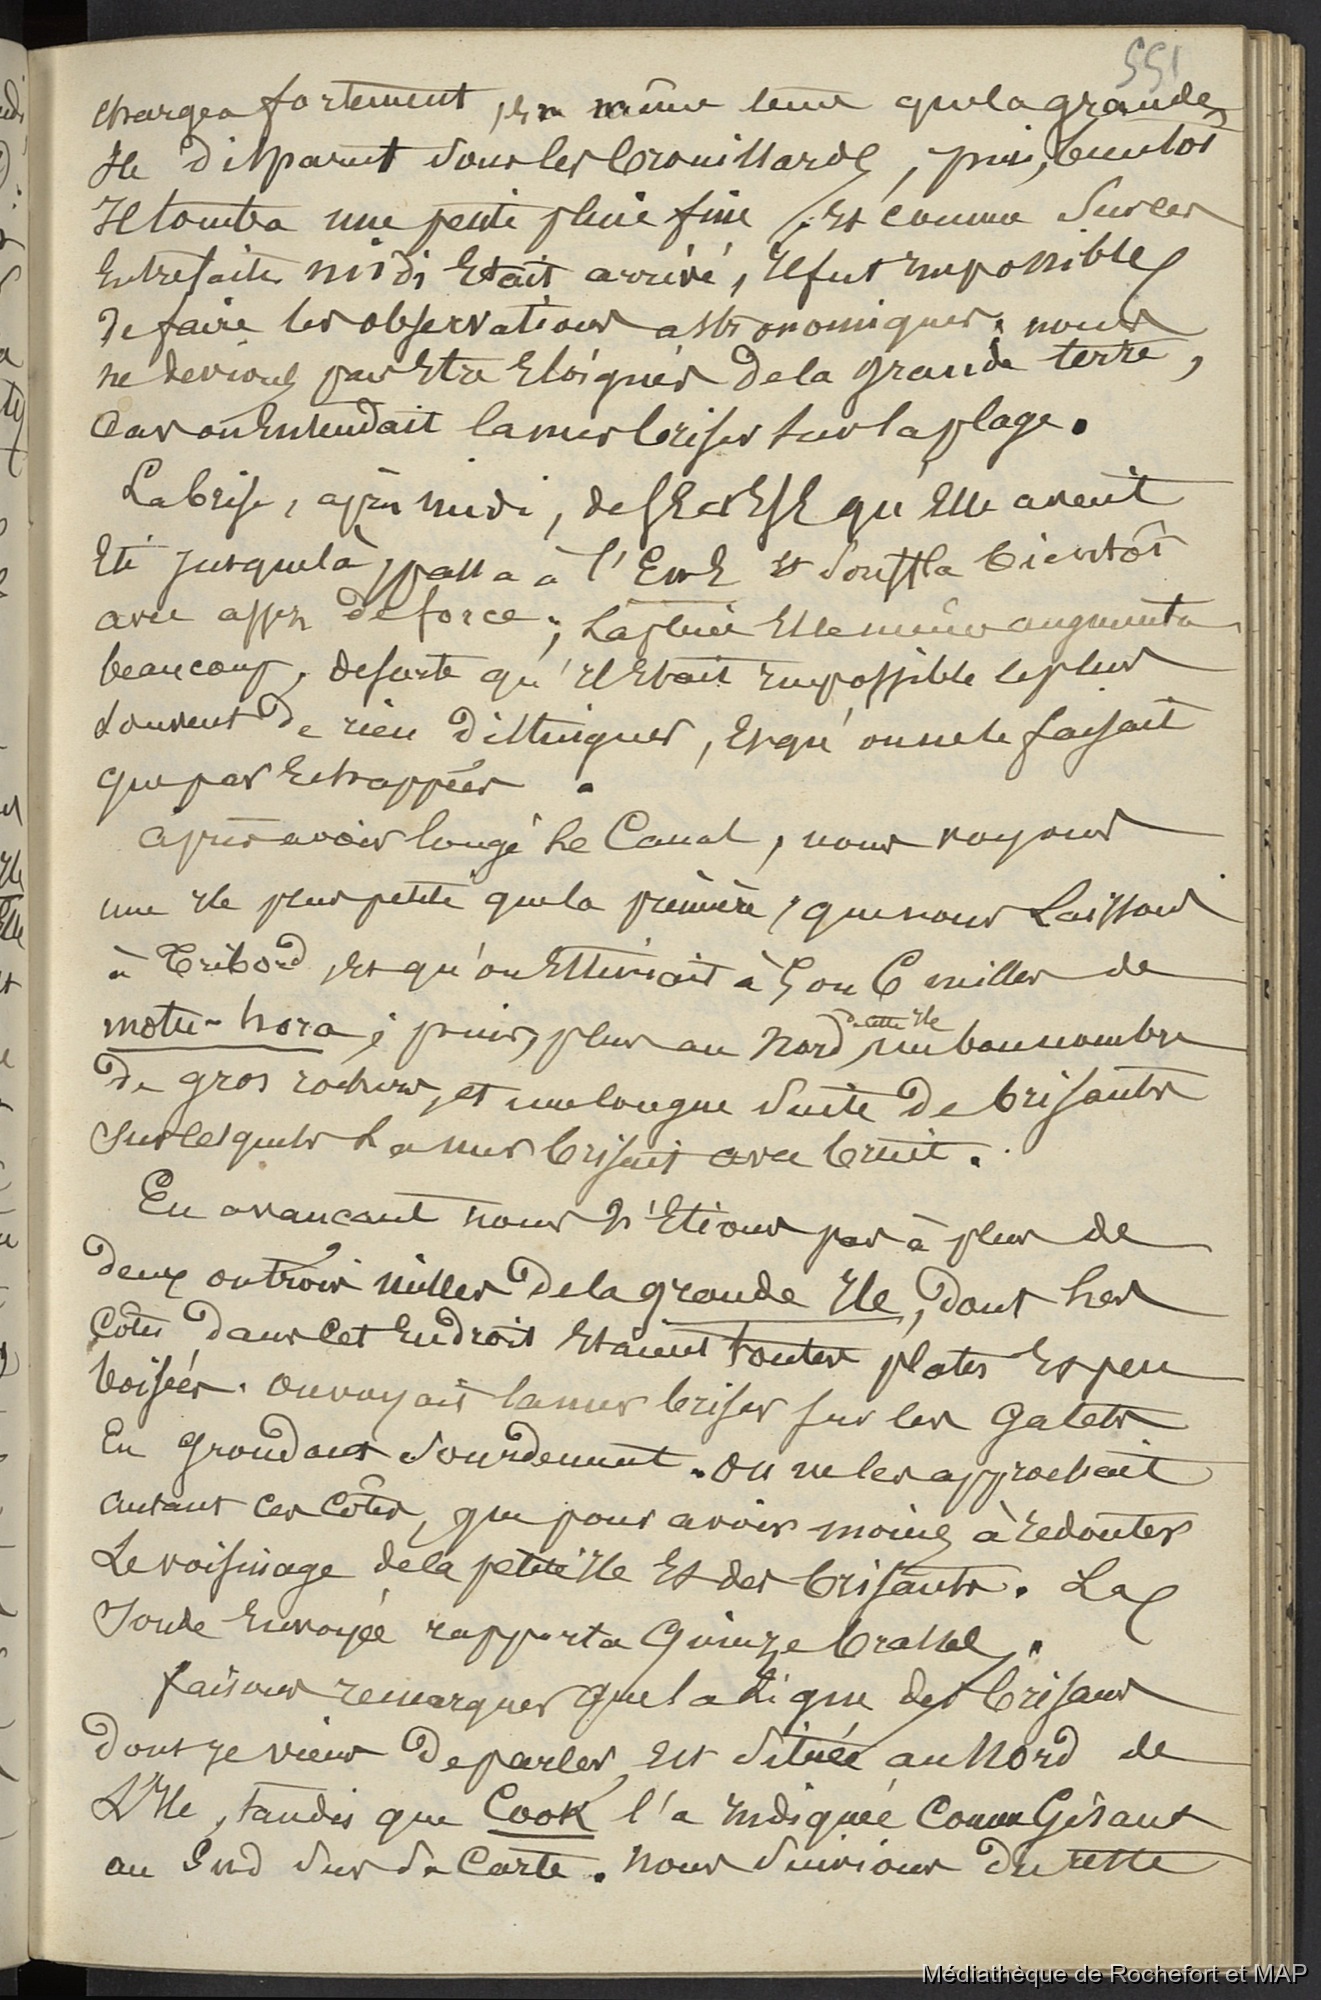 551
chargea fortement, en même tems que la grande
Ile disparut sous les brouillards, puis, bientot
Il tomba une petite pluie fine, et comme sur ces
Entrefaites midi Etait arrivé, il fut Impossible
de faire les observations astronomiques; nous
ne devions pas Etre Eloignés de la grande terre,
Car on Entendait la mer briser sur la plage.
La brise, après midi, de SE et ESE qu'Elle avait
Eté jusques là, passa à l'E et souffla bientôt
avec assez de force; La pluie Elle même augmenta
beaucoup, de sorte qu'il Etait Impossible le plus
souvent de rien distinguer, Et qu'on ne le faisait
que par Echappées.
Après avoir longé le Canal, nous voyons
une Ile plus petite que la première, que nous Laissons
à Tribord, et qu'on Estimait à 5 ou 6 milles de
motu-hora; puis, plus au Nord de cette Ile, un bon nombre
de gros rochers, et une longue suite de brisants
sur lesquels La mer brisait avec bruit.
En avancant nous n'Etions pas à plus de
deux ou trois milles de la grande Ile, dont les
Côtes dans cet Endroit Etaient toutes plates Et peu
boisées. On voyait la mer briser sur les Galets
En grondant sourdement. On ne les approchait
autant ces côtes, que pour avoir moins à redouter
Le voisinage de la petite Ile Et des brisants. La
Sonde Envoyée rapporta Quinze brasses.
faisons remarquer que la Ligne des brisans
dont je viens de parler, Est située au Nord de
L'Ile, tandis que Cook l'a Indiquée Comme Gisant
au Sud sur sa Carte. Nous suivions du reste
Médiathèque de Rochefort et MAP